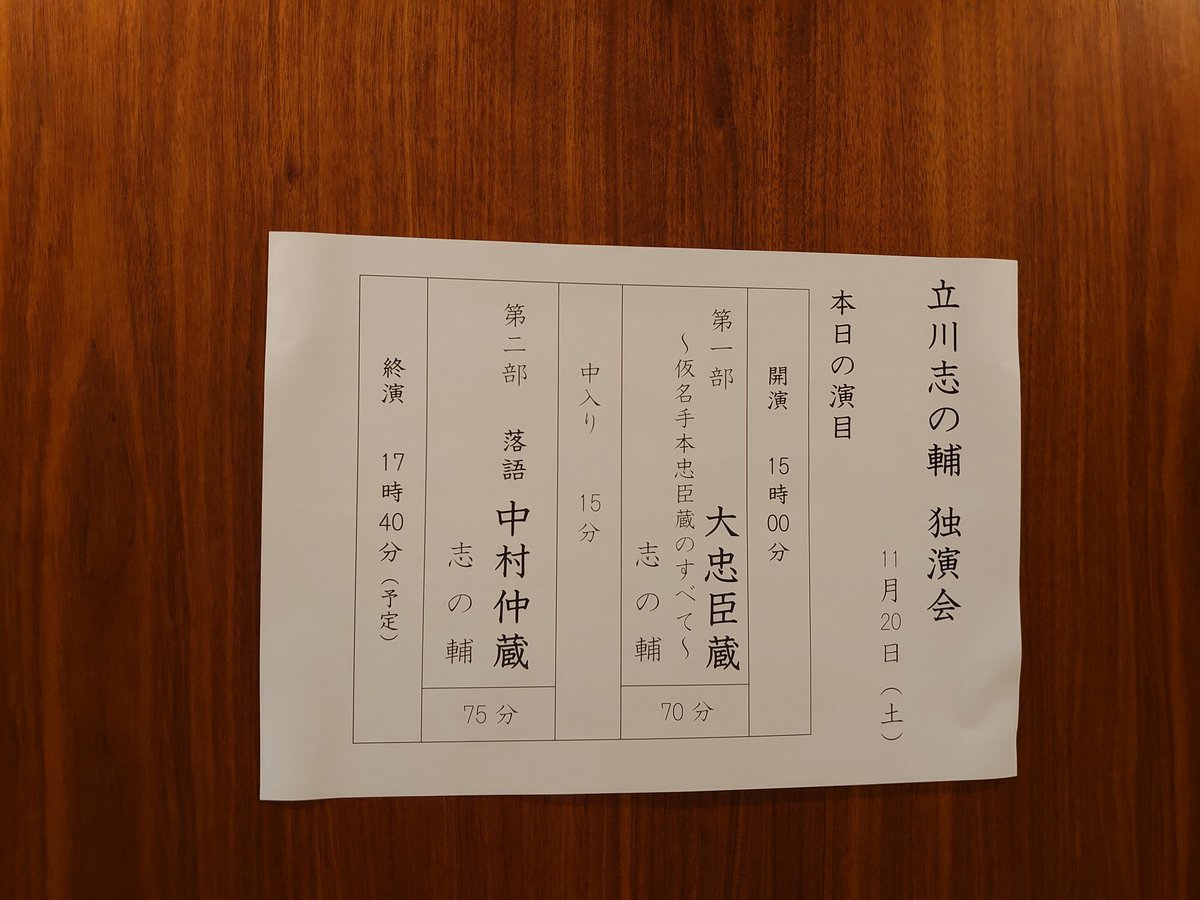 立川志の輔 独演会
11月20日（土）
本日の演目
開演 15時00分
第一部 大忠臣蔵
～仮名手本忠臣蔵のすべて～
志の輔
70分
中入り 15分
第二部 落語 中村仲蔵
志の輔
75分
終演 17時40分（予定）